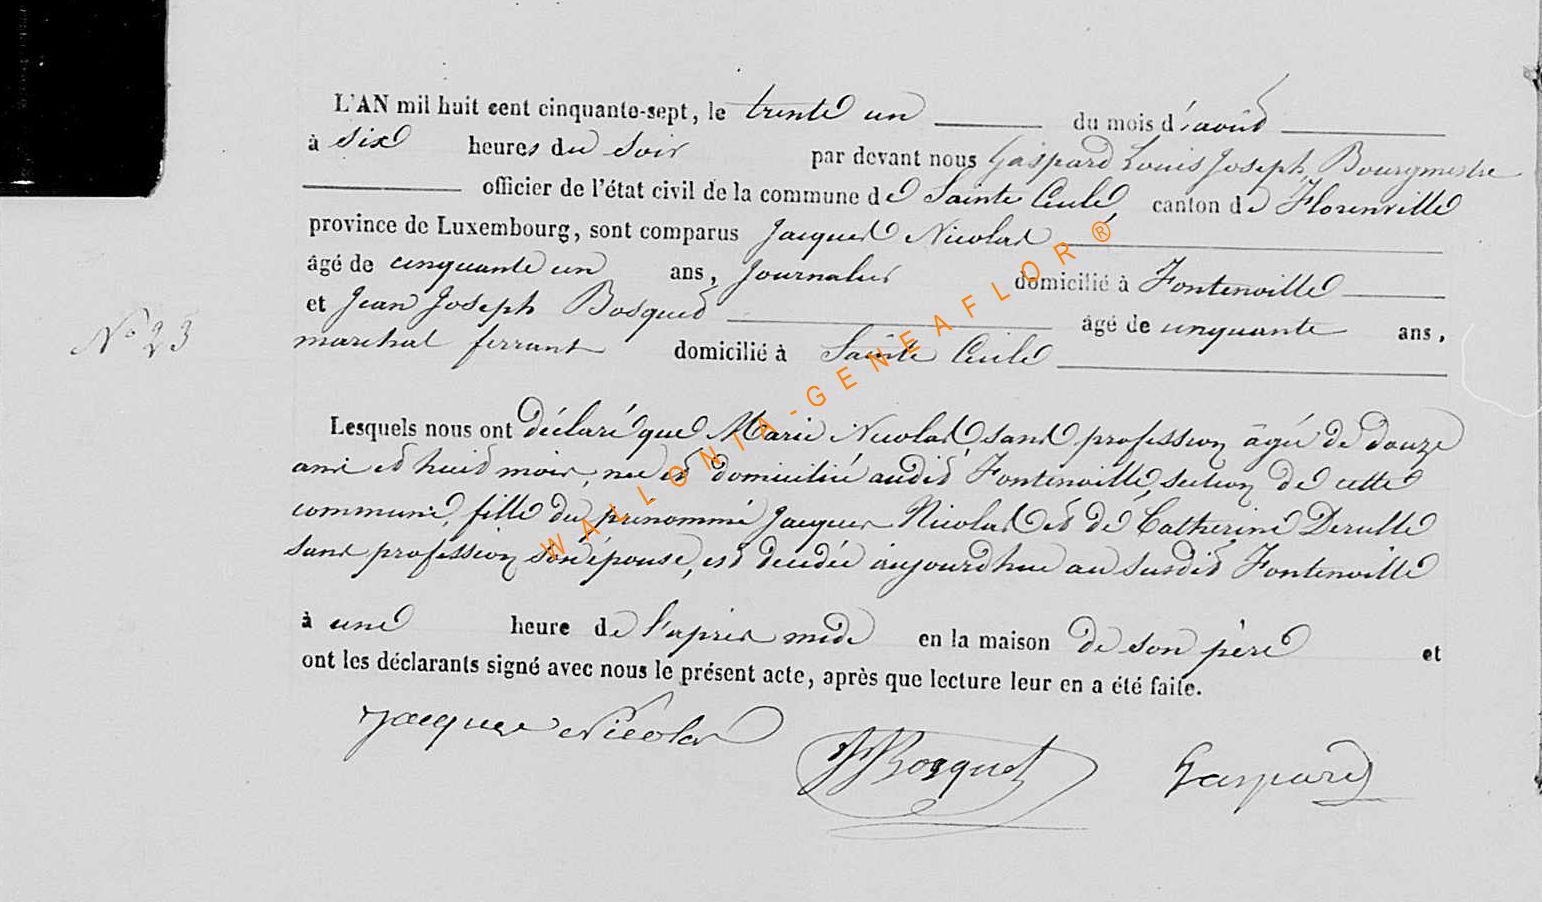 L'AN mil huit cent cinquante-sept, le trente un du mois d'août
à six heures du soir par devant nous Gaspard Louis Joseph, Bourgmestre
officier de l'état civil de la commune de Sainte Cécile, canton de Florenville
province de Luxembourg, sont comparus Jacques Nicolas
âgé de cinquante un ans, Journalier domicilié à Fontenoille
et Jean Joseph Bosquet âgé de cinquante ans,
N° 23
marechal ferrant domicilié à Sainte Cécile
Lesquels nous ont déclaré que Marie Nicolas sans profession âgée de douze
ans et huit mois, née et domiciliée audit Fontenoille, section de cette
commune, fille du prénommé Jacques Nicolas et de Catherine Derulle
sans profession son épouse, est décédée aujourd'hui au susdit Fontenoille
à une heure de l'après midi en la maison de son père et
ont les déclarants signé avec nous le présent acte, après que lecture leur en a été faite.
Jacques Nicolas JJ Bosquet Gaspard
WALLONIA-GENEAFLOR®